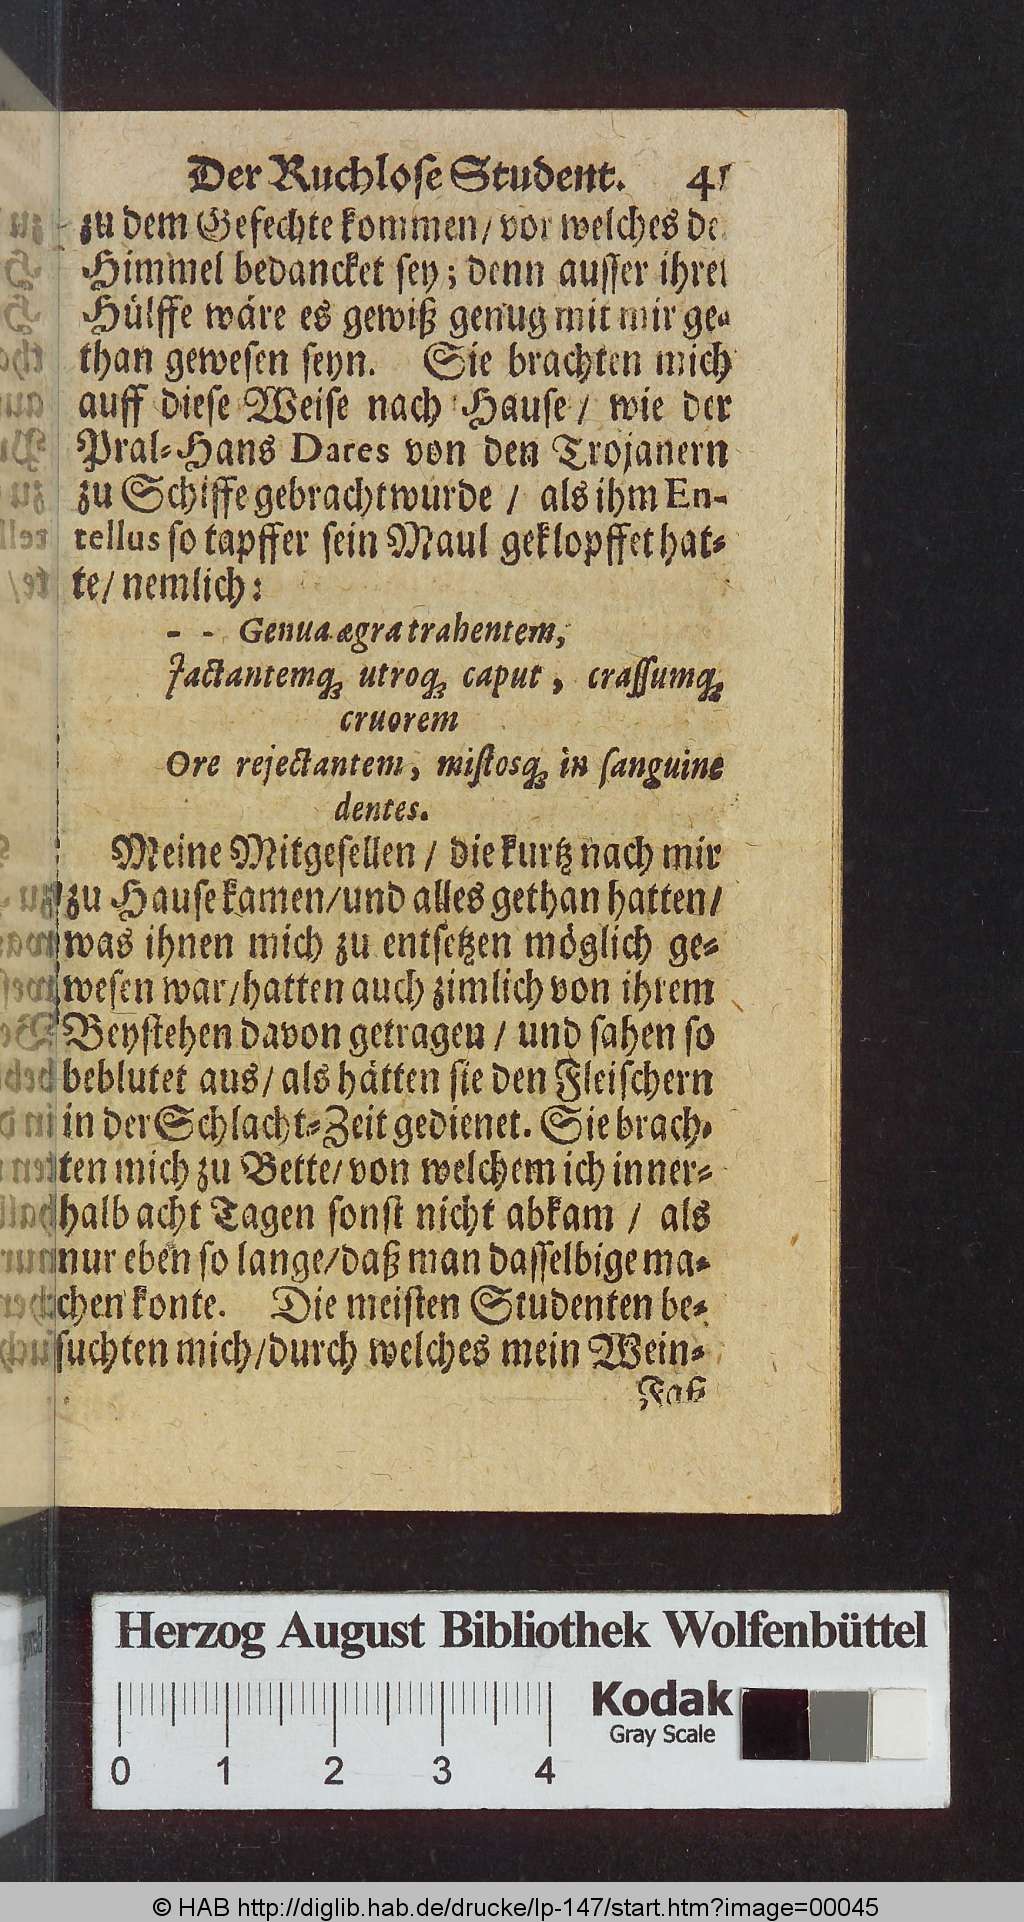 Der Ruchlose Student. 41
zu dem Gefechte kommen/ vor welches de
Himmel bedancket sey; denn ausser ihrer
Hülffe wäre es gewiß genug mit mir ge-
than gewesen seyn. Sie brachten mich
auff diese Weise nach Hause/ wie der
Pral-Hans Dares von den Trojanern
zu Schiffe gebracht wurde / als ihm En-
tellus so tapffer sein Maul geklopffet hat-
te/ nemlich:
- - Genua ægra trahentem,
Jactantemq; utroq; caput, crassumq;
cruorem
Ore rejectantem, mistosq; in sanguine
dentes.
Meine Mitgesellen / die kurtz nach mir
zu Hause kamen/und alles gethan hatten/
was ihnen mich zu entsetzen möglich ge-
wesen war/hatten auch zimlich von ihrem
Beystehen davon getragen / und sahen so
beblutet aus/ als hätten sie den Fleischern
in der Schlacht-Zeit gedienet. Sie brach-
ten mich zu Bette/ von welchem ich inner-
halb acht Tagen sonst nicht abkam / als
nur eben so lange/daß man dasselbige ma-
chen konte. Die meisten Studenten be-
suchten mich/durch welches mein Wein-
Faß
Herzog August Bibliothek Wolfenbüttel
Kodak
Gray Scale
0 1 2 3 4
© HAB http://diglib.hab.de/drucke/lp-147/start.htm?image=00045